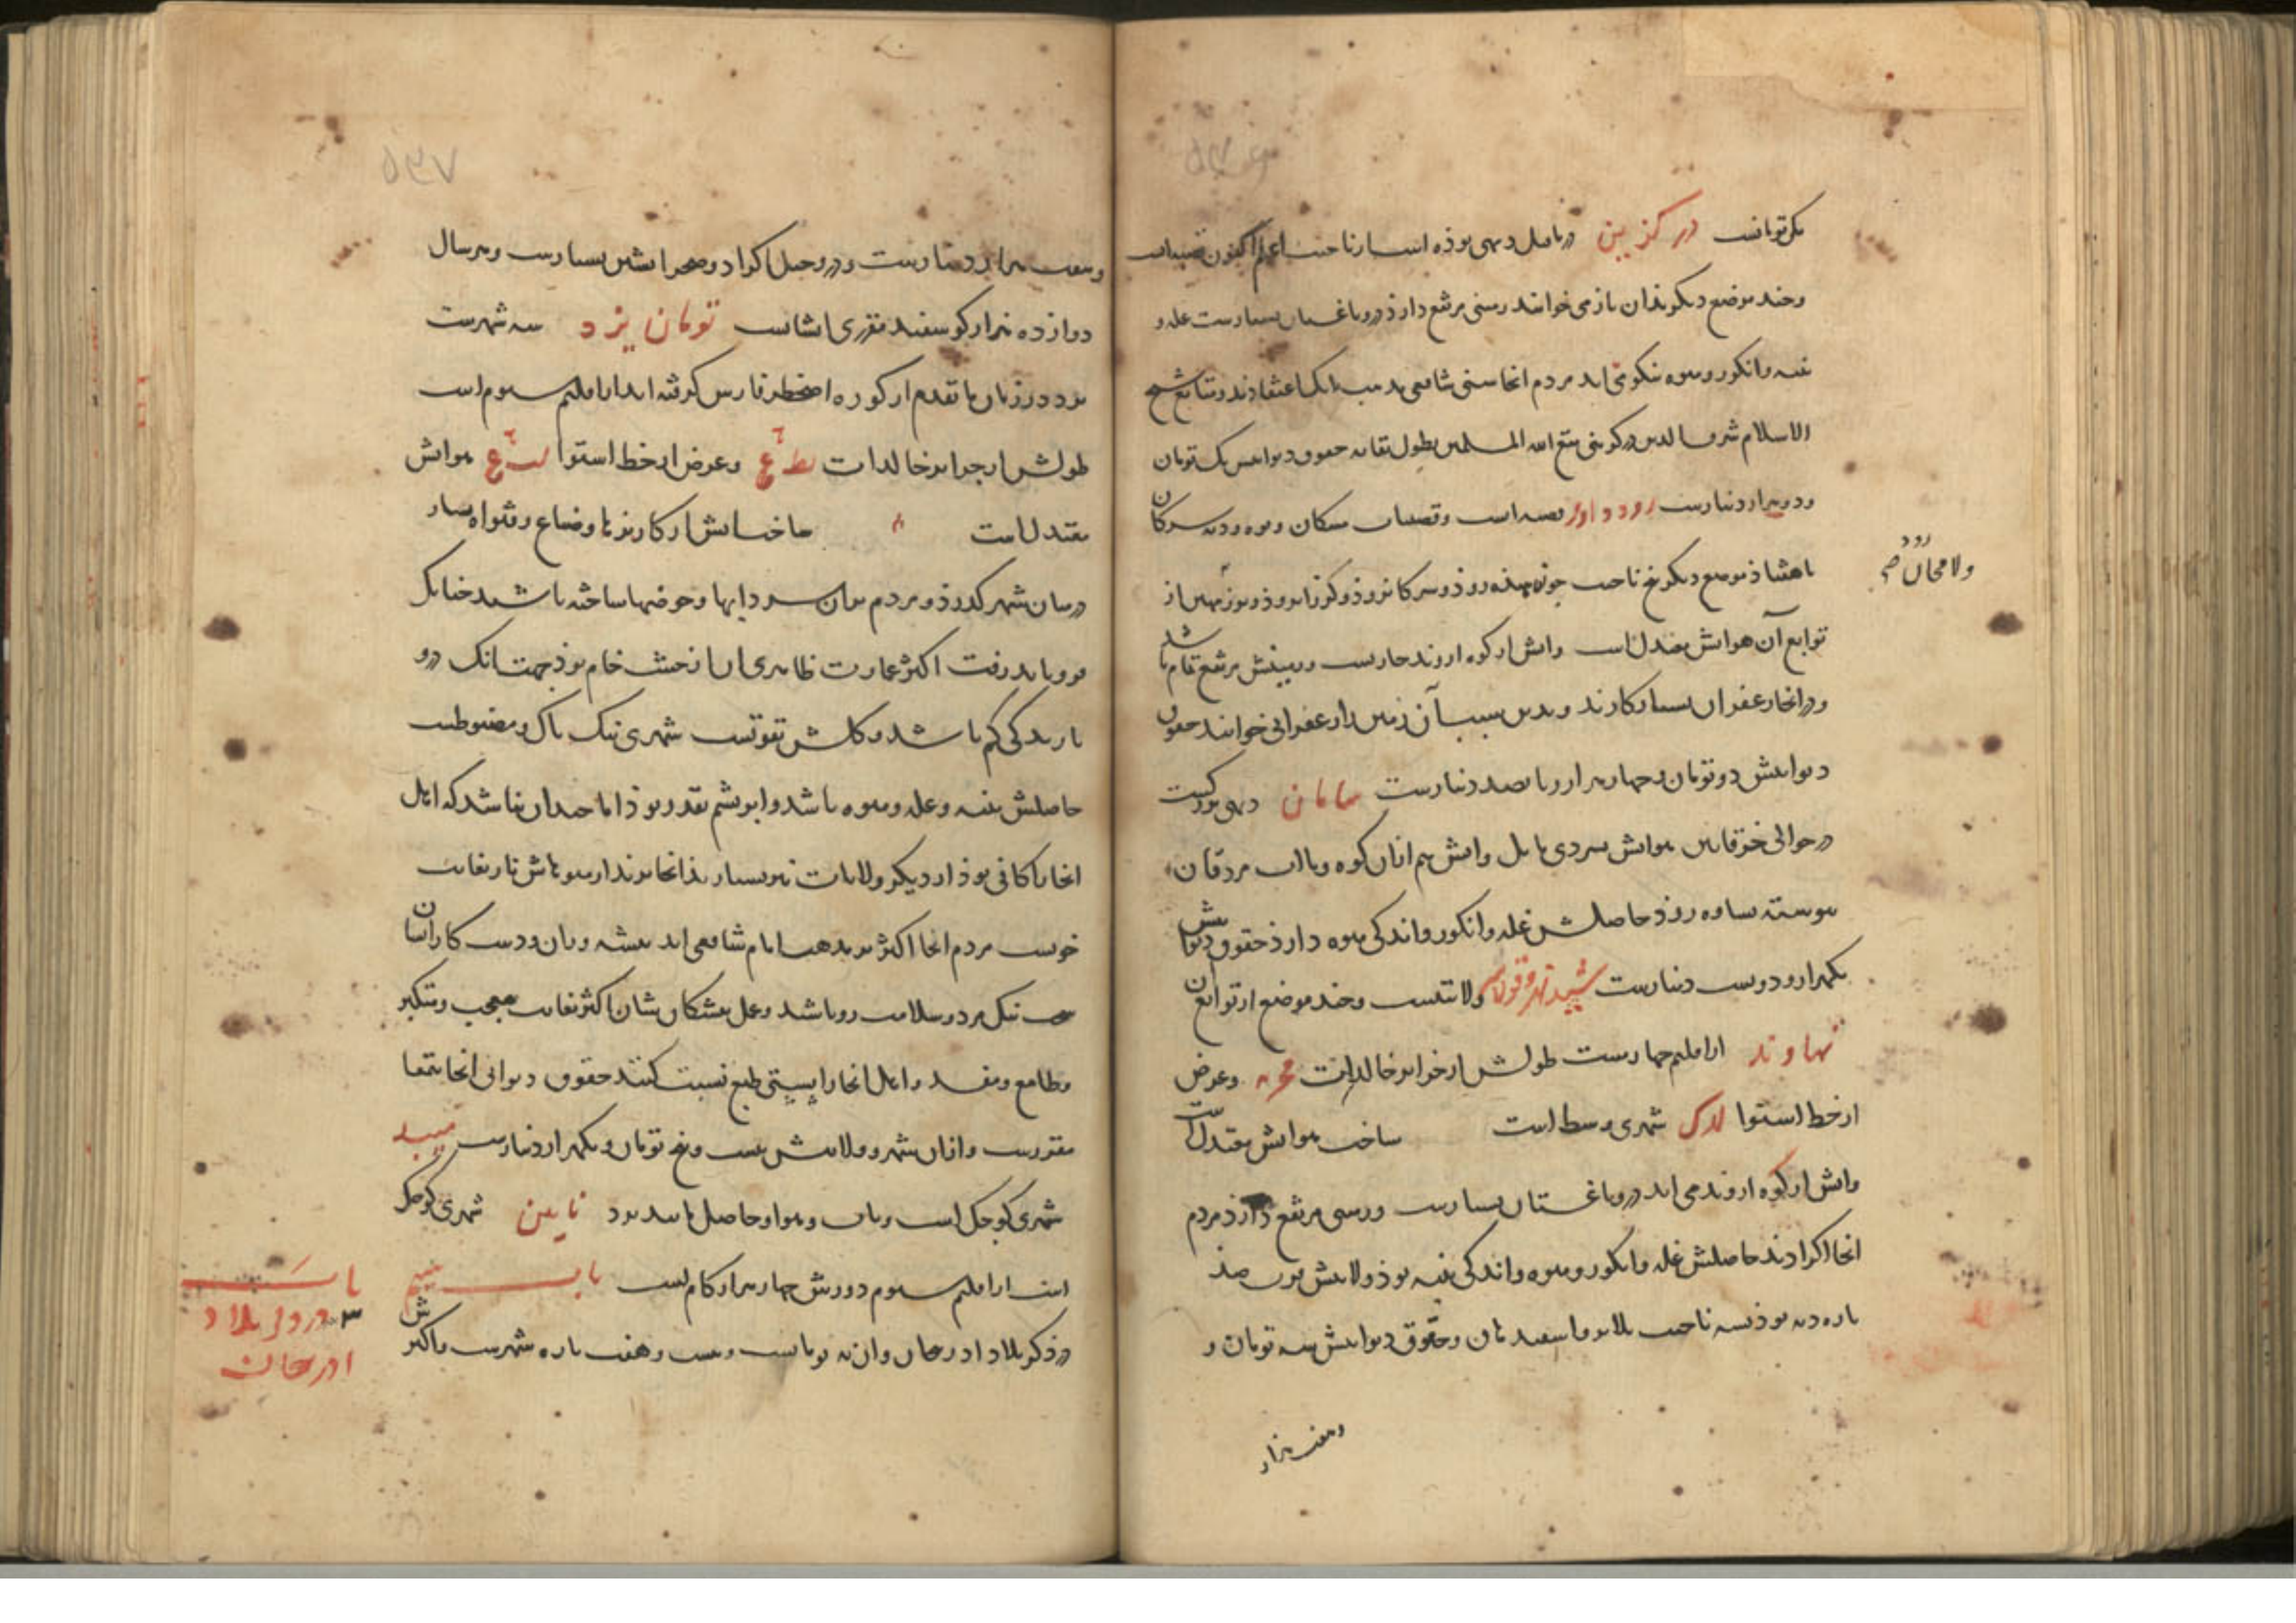 ۵۳۶
یک تومانست درکزین در ماقبل دیهی بوذه است از ناحیت اعلم اکنون قصبه است
و چند موضع دیگر بذان باز می خوانند زمینی مرتفع دارذ و درو باغستان بسیارست غله و
پنبه و انکور و میوه نیکو می آید مردم آنجا سنی شافعی مذهب پاک اعتقادند و متابع شیخ
الاسلام شرف الدین درکزینی متع الله المسلمین بطول بقائه حقوق دیوانیش یک تومان
و دو هزار دینارست رودداور قصبه است و قصبات سرکان و توی
با هفتاذ موضع دیگر پنج ناحیت چون هندرود و سرکانرود و کرزانرود و برزمهین از
رود ولامجان صح
توابع آن هوایش معتدل است و آبش از کوه اروند جاریست و زمینش مرتفع تمام باشد
و در آنجا زعفران بسیار کارند و بدین سبب آن زمین را زعفرانی خوانند حقوق
دیوانیش دو تومان و چهار هزار و پانصد دینارست سامان دیهی بزرکست
در حوالی خرقانین هوایش بسردی مایل و آبش هم از آن کوه و با آب مزدقان
پیوسته بساوه روذ حاصلش غله و انکور و اندکی میوه دارذ حقوق دیوانیش
یکهزار و دویست دینارست ولایتیست و چند موضع از توابع آن
نهاوند از اقلیم چهارست طولش از جزایر خالدات و عرض
از خط استوا شهری وسط است ساخت هوایش معتدل است
و آبش از کوه اروند می آید درو باغستان بسیارست و زمینی مرتفع دارذ مردم
آنجا اکرادند حاصلش غله و انکور و میوه و اندکی پنبه بوذ ولایتش قریب صذ
پاره دیه بوذ بسه ناحیت ملایر و اسفیدهان و حقوق دیوانیش سه تومان و
و هفت هزار
۵۳۷
و هفت هزار دینارست و در و خیل اکراد و صحرانشین بسیارست و هر سال
دوازده هزار کوسفند مقرری ایشانست تومان یزد سه شهرست
یزد در زمان ما تقدم از کوره اصطخر فارس کرفته اند از اقلیم سیوم است
طولش از جزایر خالدات و عرض از خط استوا هوایش
معتدل است ساخت آبش از کاریزها و ضیاع و قنوات بسیار
در میان شهر کذرذ و مردم بر آن سردابها و حوضها ساخته باشند چنانک
فرو باید رفت اکثر عمارت ظاهری آن از خشت خام بوذ جهت آنک درو
بارندکی کم باشد و کلش بقوتست شهری نیک پاک و مضبوطست
حاصلش پنبه و غله و میوه باشد و ابریشم بقدر بوذ اما چندان نباشد که اهل
آنجا را کافی بوذ از دیگر ولایات نیز بسیار بذانجا برند از میوهاش نار بغایت
خوبست مردم آنجا اکثر بر مذهب امام شافعی اند پیشه وران و دست کاران آنجا
سخت نیک مرد و سلامت رو باشند و عمل پیشکان شان اکثر بغایت معجب و متکبر
و طامع و مفسد و اهل آنجا را بسستی طبع نسبت کنند حقوق دیوانی آنجا بتمغا
مقررست و از آن شهر و ولایتش بیست و پنج تومان و یکهزار دینارست میبد
شهری کوچک است و بآب و هوا و حاصل مانند یزد نایین شهری کوچک
است از اقلیم سیوم دورش چهار هزار کام است باب سیم
در ذکر بلاد آذربیجان و آن نه تومانست و بیست و هفت پاره شهرست و اکثرش
باب
۳ در ذکر بلاد
آذربیجان